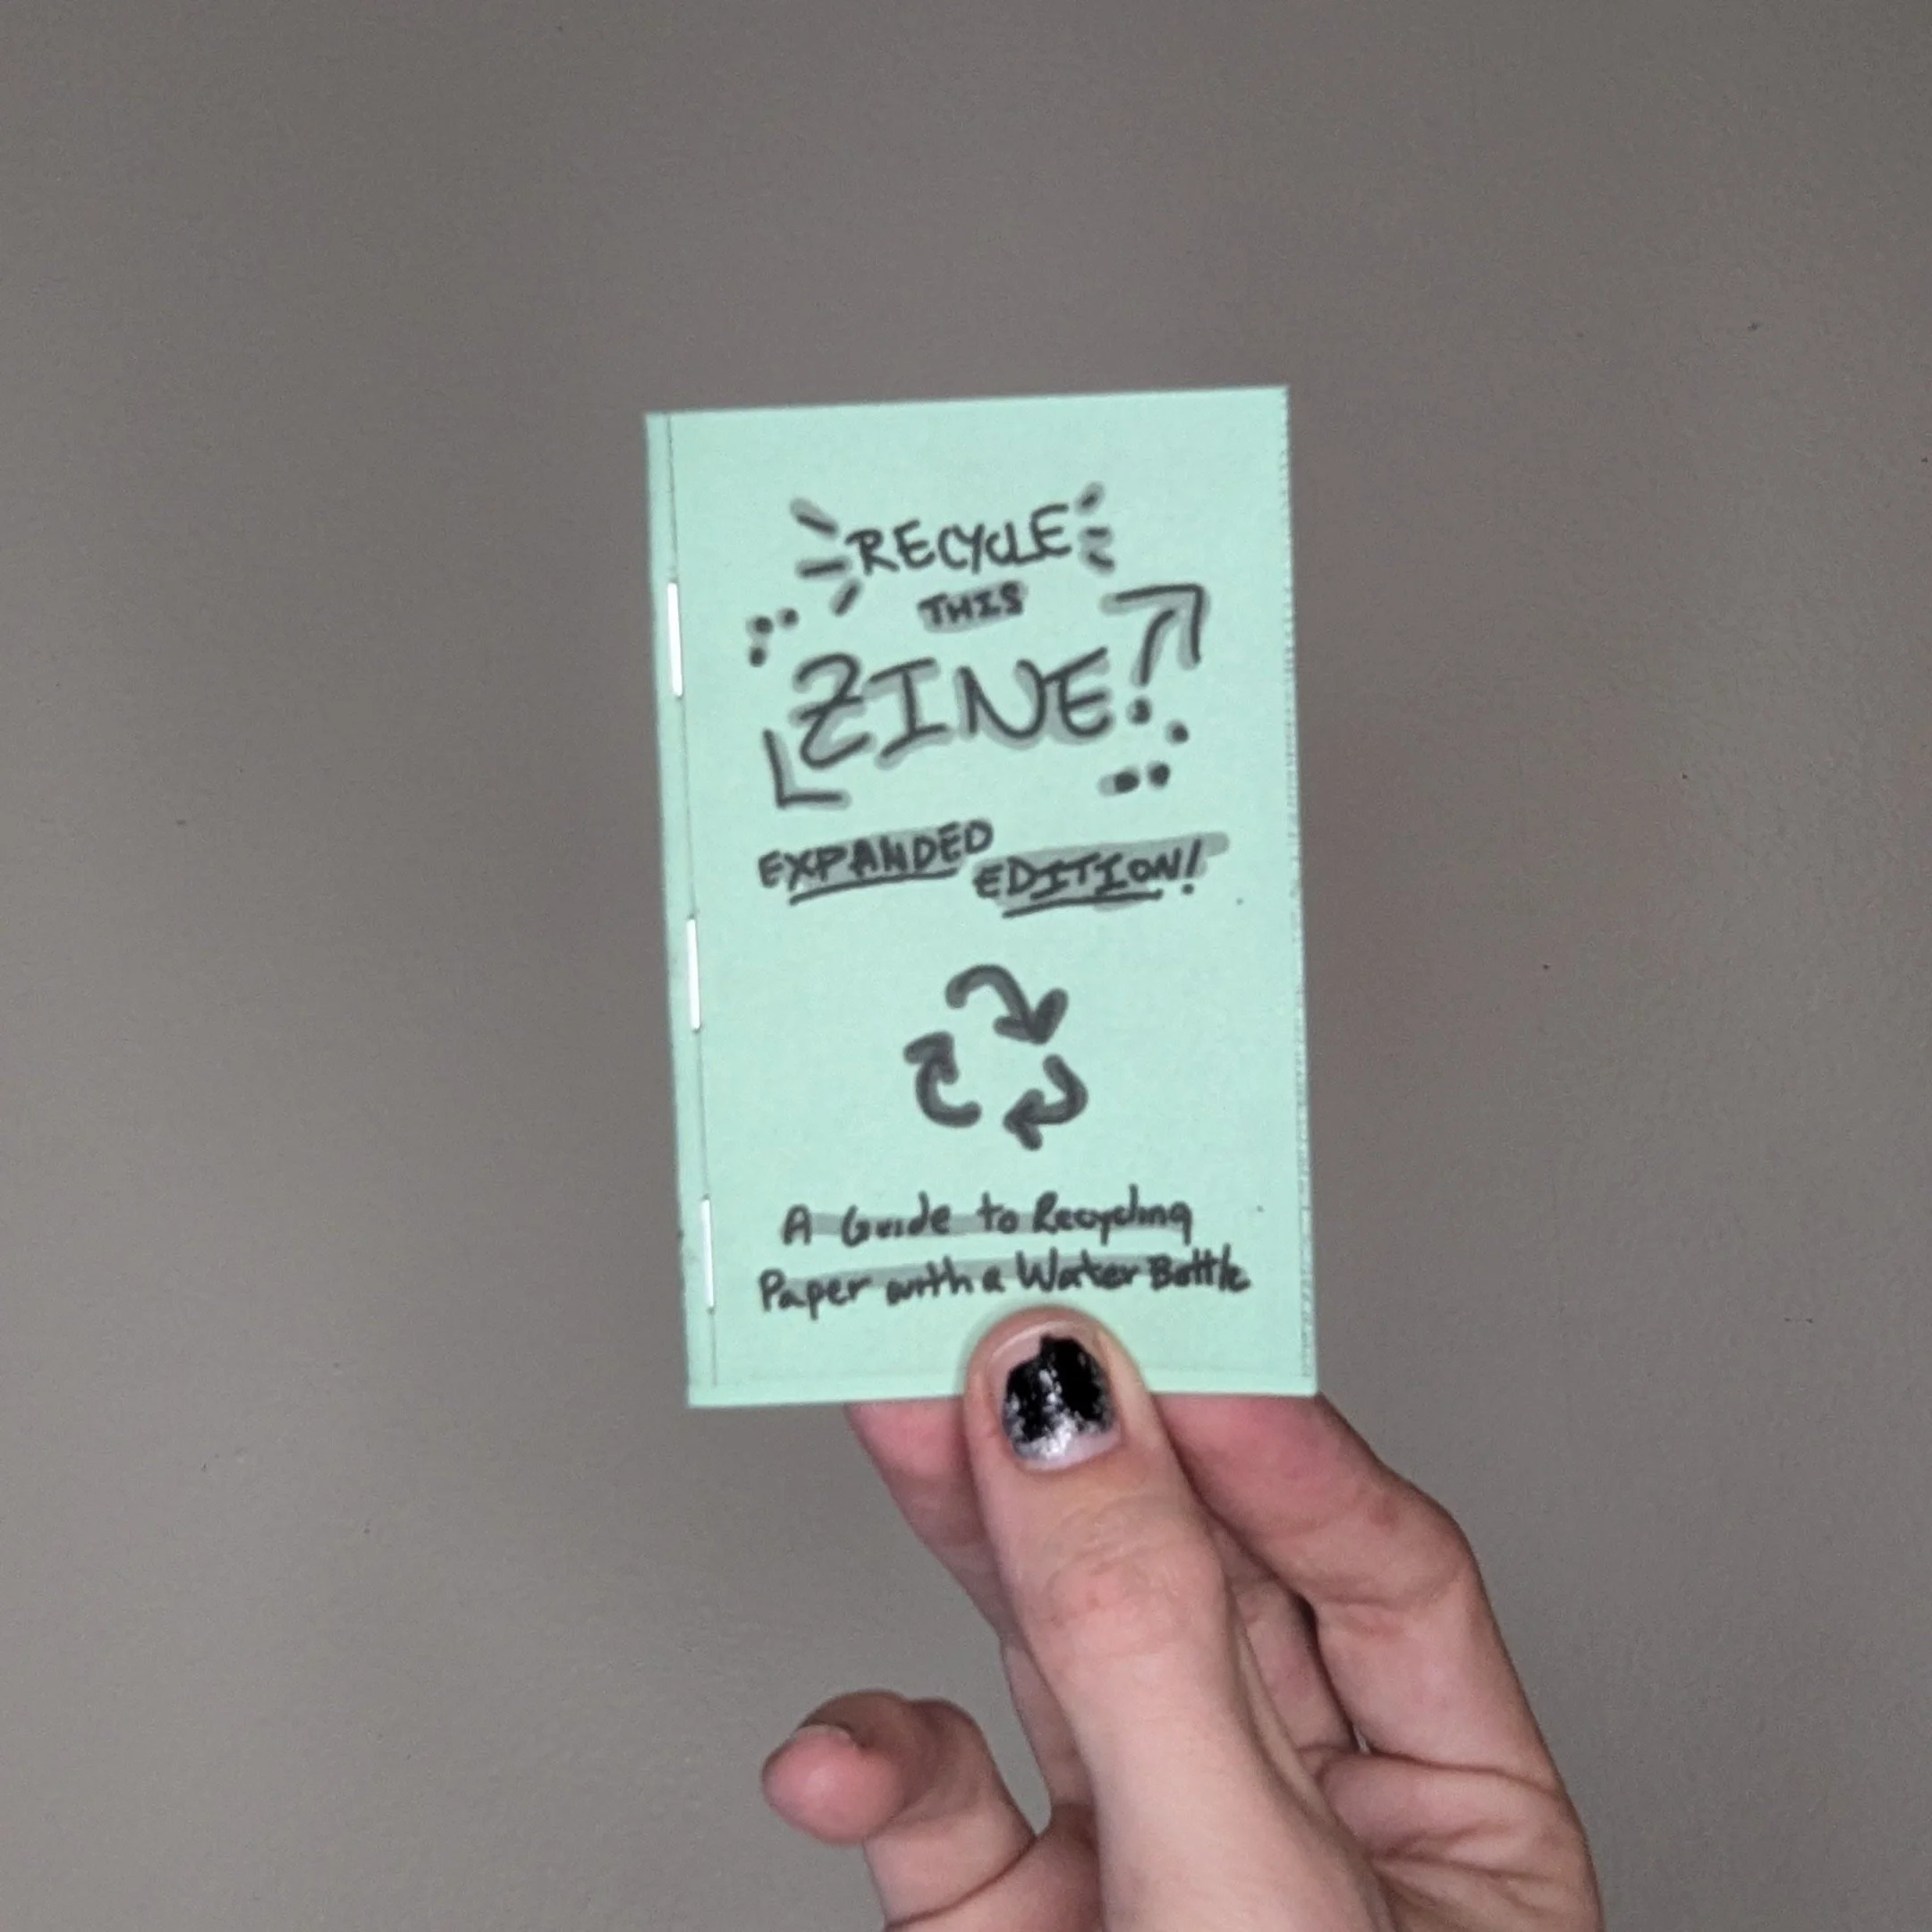 RECYCLE
THIS
ZINE!
EXPANDED
EDITION!
A Guide to Recycling
Paper with a Water Bottle